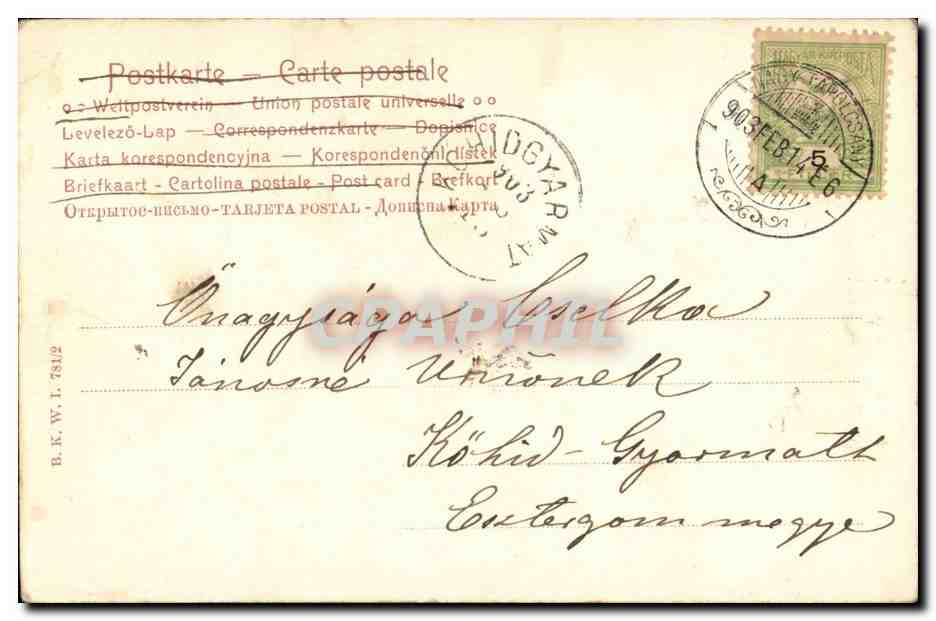 Postkarte — Carte postale
Weltpostverein — Union postale universelle
Levelező-Lap — Correspondenzkarte — Dopisnice
Karta korespondencyjna — Korespondenční lístek
Briefkaart - Cartolina postale - Post card - Brefkort
Открытое-письмо-TARJETA POSTAL - Дописна Карта
NAGY-TAPOLCSÁNY
903 FEB. 14 E6
A
5
KŐHIDGYARMAT
903
CPAPHIL
Őnagysága Cselka
Jánosné Úrnőnek
Kőhid-Gyarmatt
Esztergom megye
B. K. W. I. 781/2